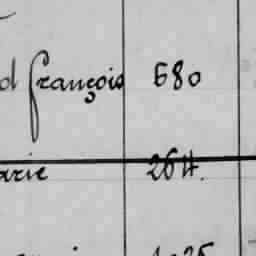 d françois 680
arie 264.